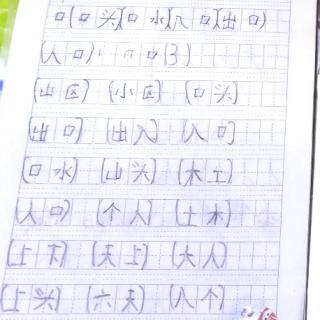 口(口头)(口水)(入口)(出口)
(人口)
(山区) (小区) (口头)
(出口) (出入) (入口)
(口水) (山头) (木土)
(人口) (个人) (土木)
(上下) (天上) (大人)
(上头) (六天) (八个)